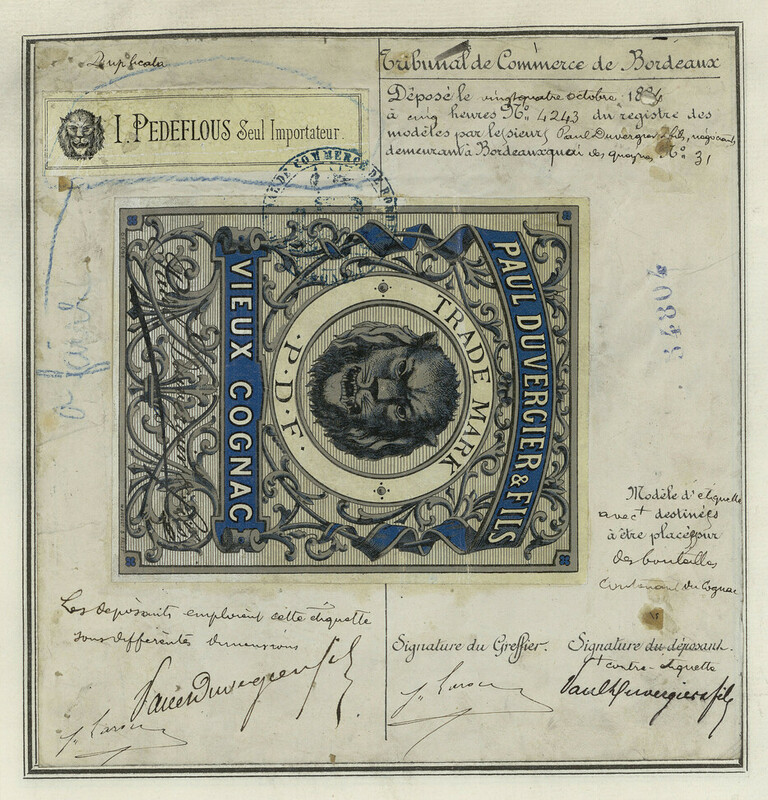 Duplicata
I. PEDEFLOUS Seul Importateur.
Tribunal de Commerce de Bordeaux
Déposé le vingt quatre octobre
à cinq heures No. 4243 du registre des
modèles par les sieurs Paul Duvergier & fils, négociants
demeurant à Bordeaux quai des No. 31
PAUL DUVERGIER & FILS
TRADE MARK
· P · D · F ·
VIEUX COGNAC
34804
Modèle d'étiquette
avec destinées
à être placées sur
des bouteilles
contenant du Cognac
Les déposants emploient cette étiquette
sous différentes dimensions
Paul Duvergier & fils
Signature du Greffier.
Signature du déposant.
+ contre-étiquette
Paul Duvergier & fils